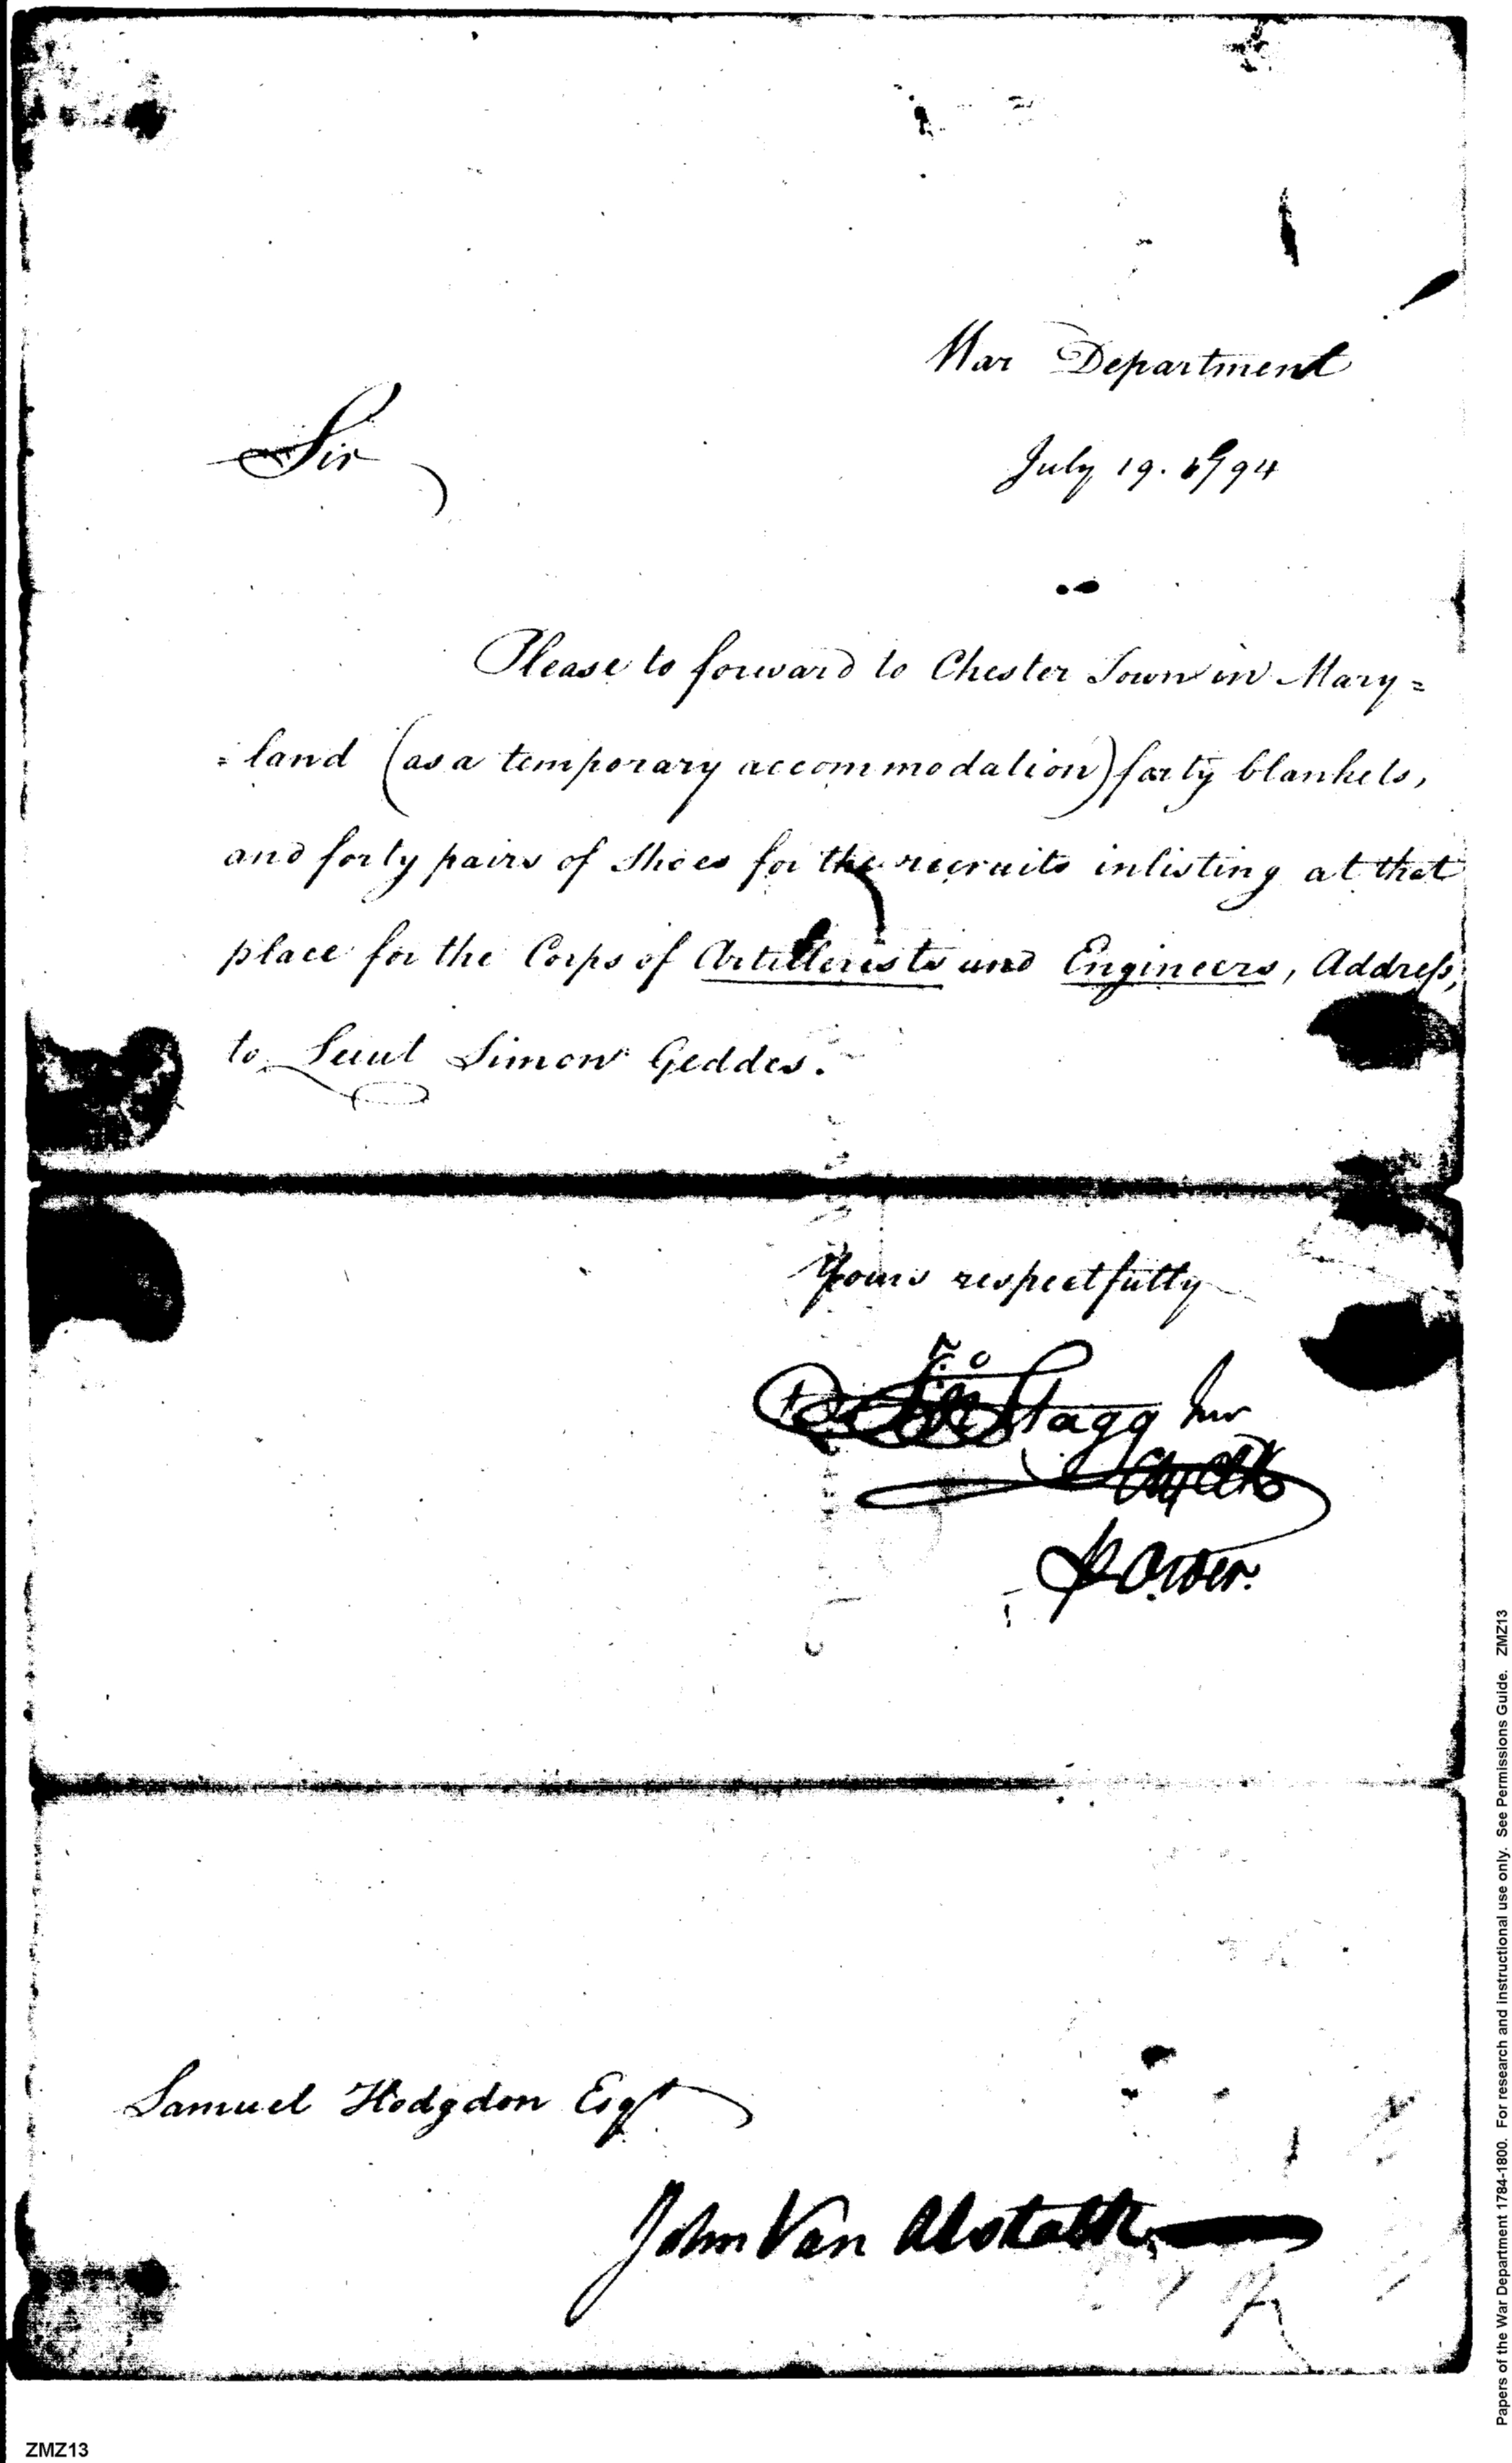 War Department
Sir
July 19. 1794
Please to forward to Chester Town in Mary=
=land (as a temporary accommodation) forty blankets,
and forty pairs of Shoes for the recruits inlisting at that
place for the Corps of Artillerists and Engineers, Address,
to Lieut Simon Geddes.
Yours respectfully
Stagg Junr
Order.
Samuel Hodgdon Esqr
John Van
Papers of the War Department 1784-1800. For research and instructional use only. See Permissions Guide. ZMZ13
ZMZ13